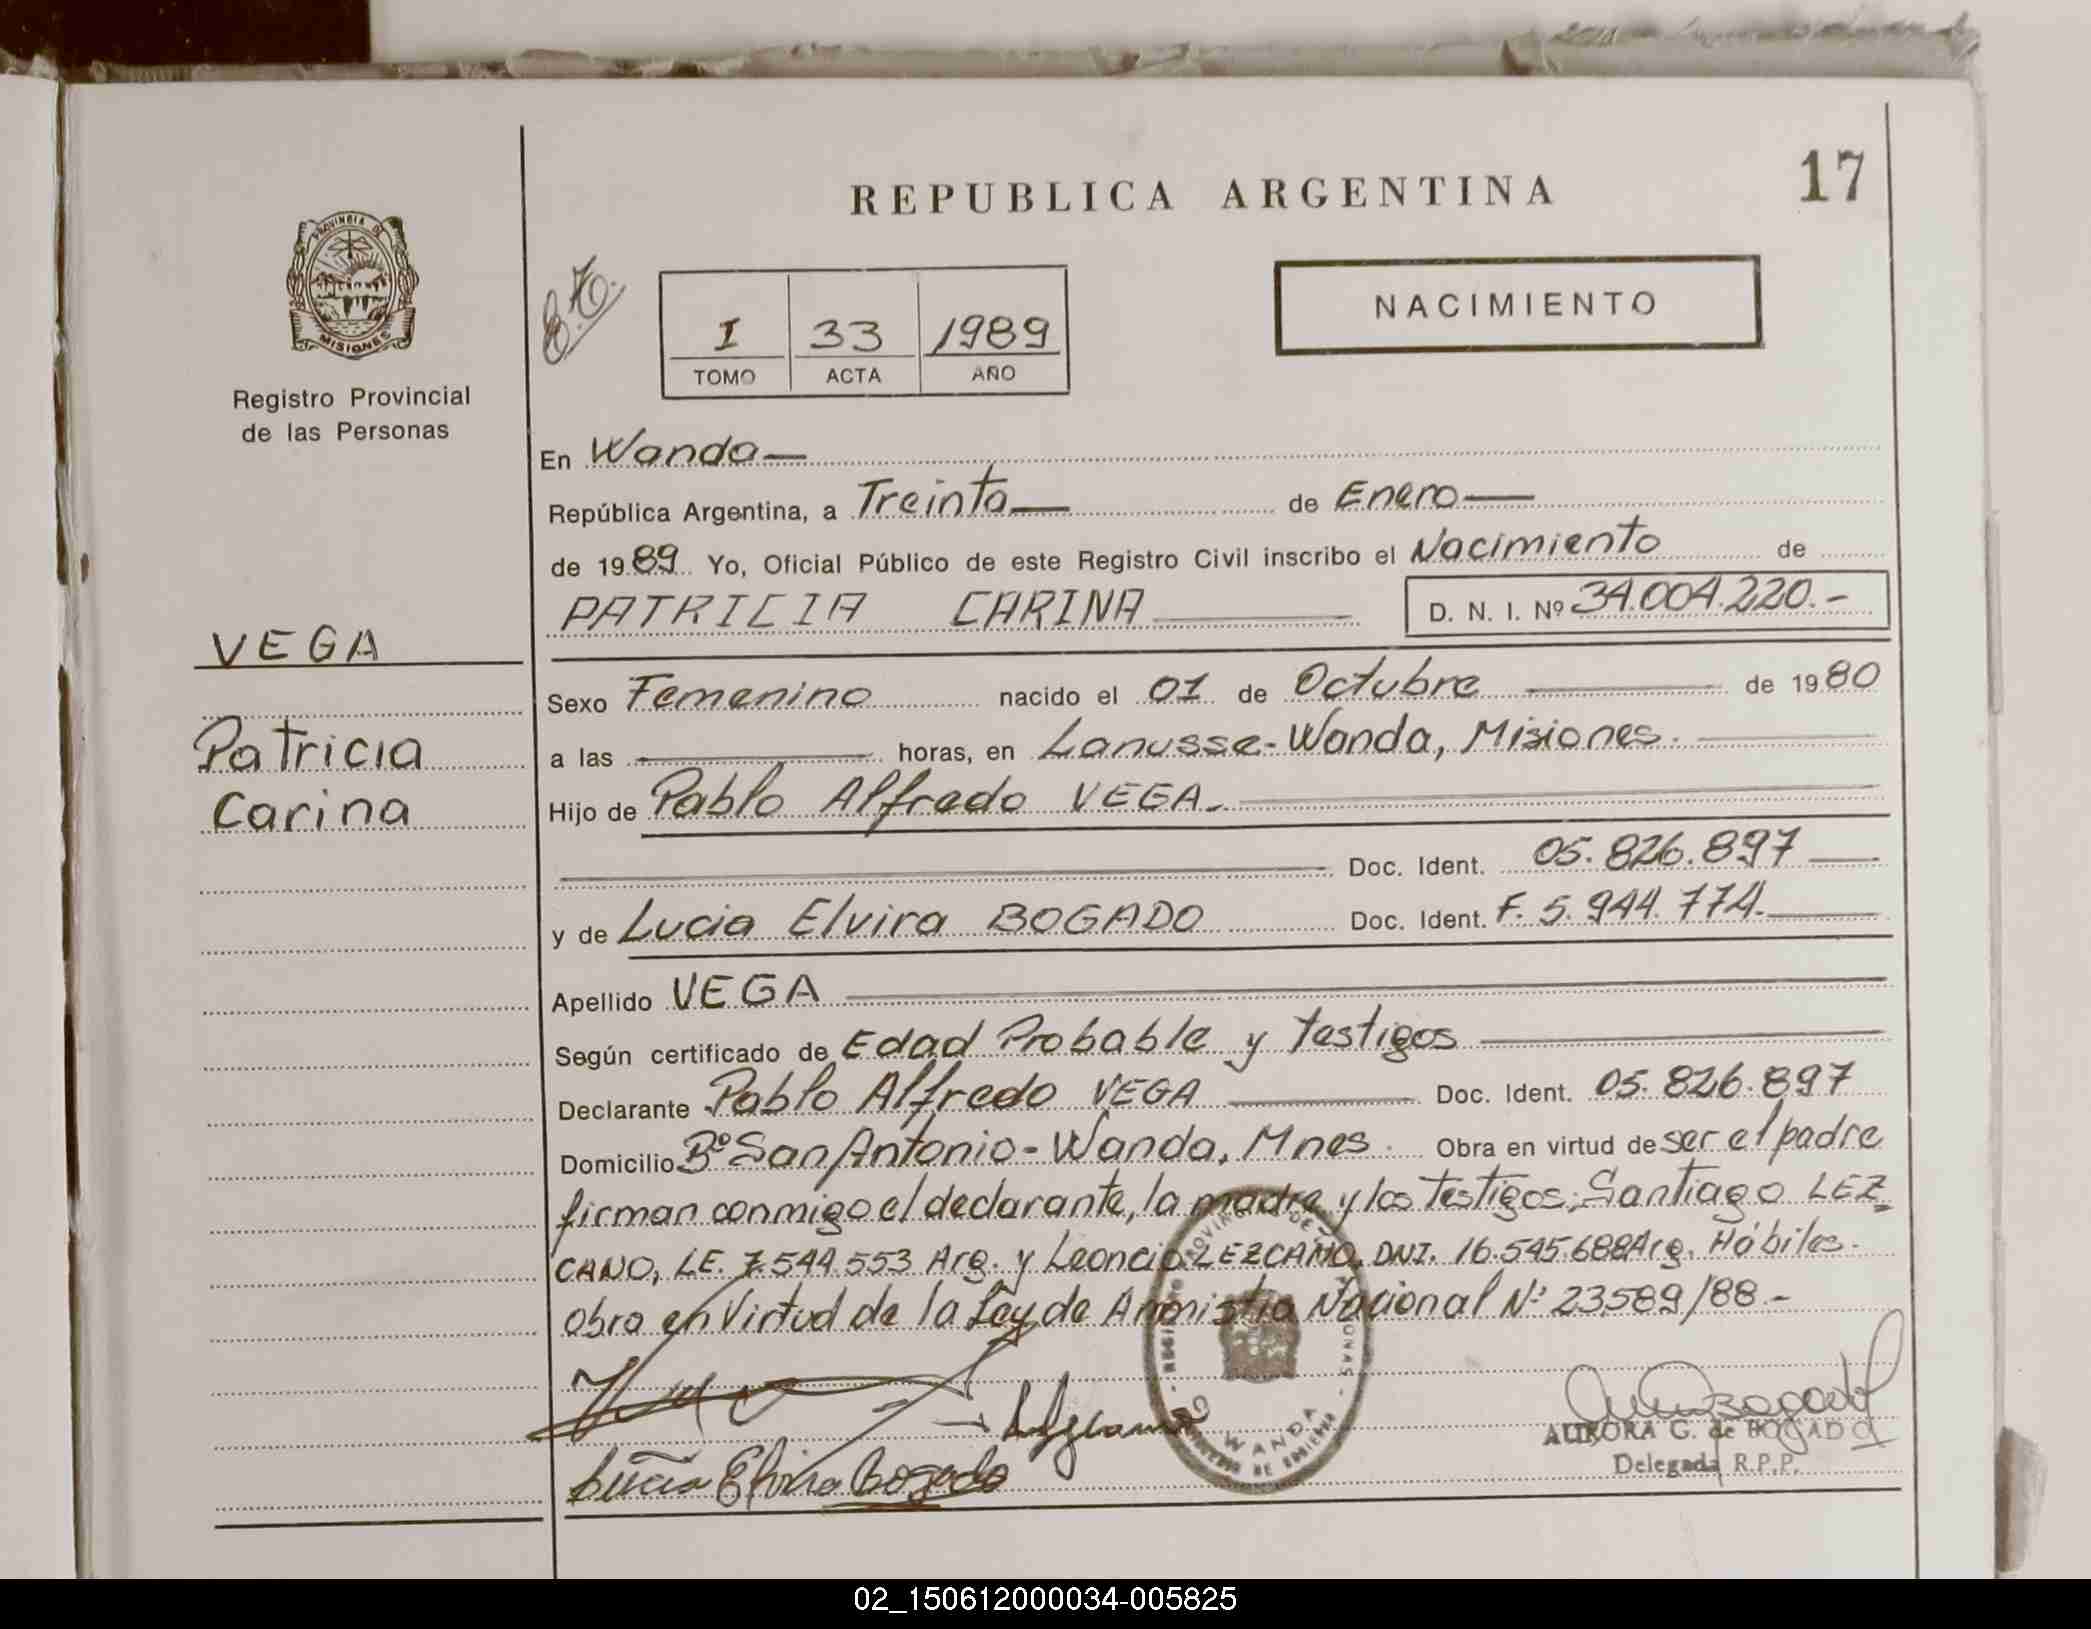 17
REPUBLICA ARGENTINA
PROVINCIA DE
MISIONES
Registro Provincial
de las Personas
I 33 1989
TOMO ACTA AÑO
NACIMIENTO
En Wanda
República Argentina, a Treinta de Enero
de 1989 Yo, Oficial Público de este Registro Civil inscribo el Nacimiento de
PATRICIA CARINA D. N. I. Nº 34.004.220.-
VEGA
Patricia
Carina
Sexo Femenino nacido el 01 de Octubre de 1980
a las horas, en Lanusse-Wanda, Misiones.
Hijo de Pablo Alfredo VEGA.
Doc. Ident. 05.826.897
y de Lucia Elvira BOGADO Doc. Ident. F. 5.944.774.
Apellido VEGA
Según certificado de Edad Probable y testigos
Declarante Pablo Alfredo VEGA Doc. Ident. 05.826.897
Domicilio Bº San Antonio-Wanda, Mnes. Obra en virtud de ser el padre
firman conmigo el declarante, la madre y los Testigos; Santiago LEZ
CANO, LE. 7.544.553 Arg. y Leoncio LEZCANO, DNI. 16.545.688 Arg. Hábiles.
Obra en Virtud de la Ley de Amnistia Nacional Nº 23589/88.-
Lucia Elvira Bogado
WANDA
AURORA G. de BOGADO
Delegada R.P.P.
02_150612000034-005825